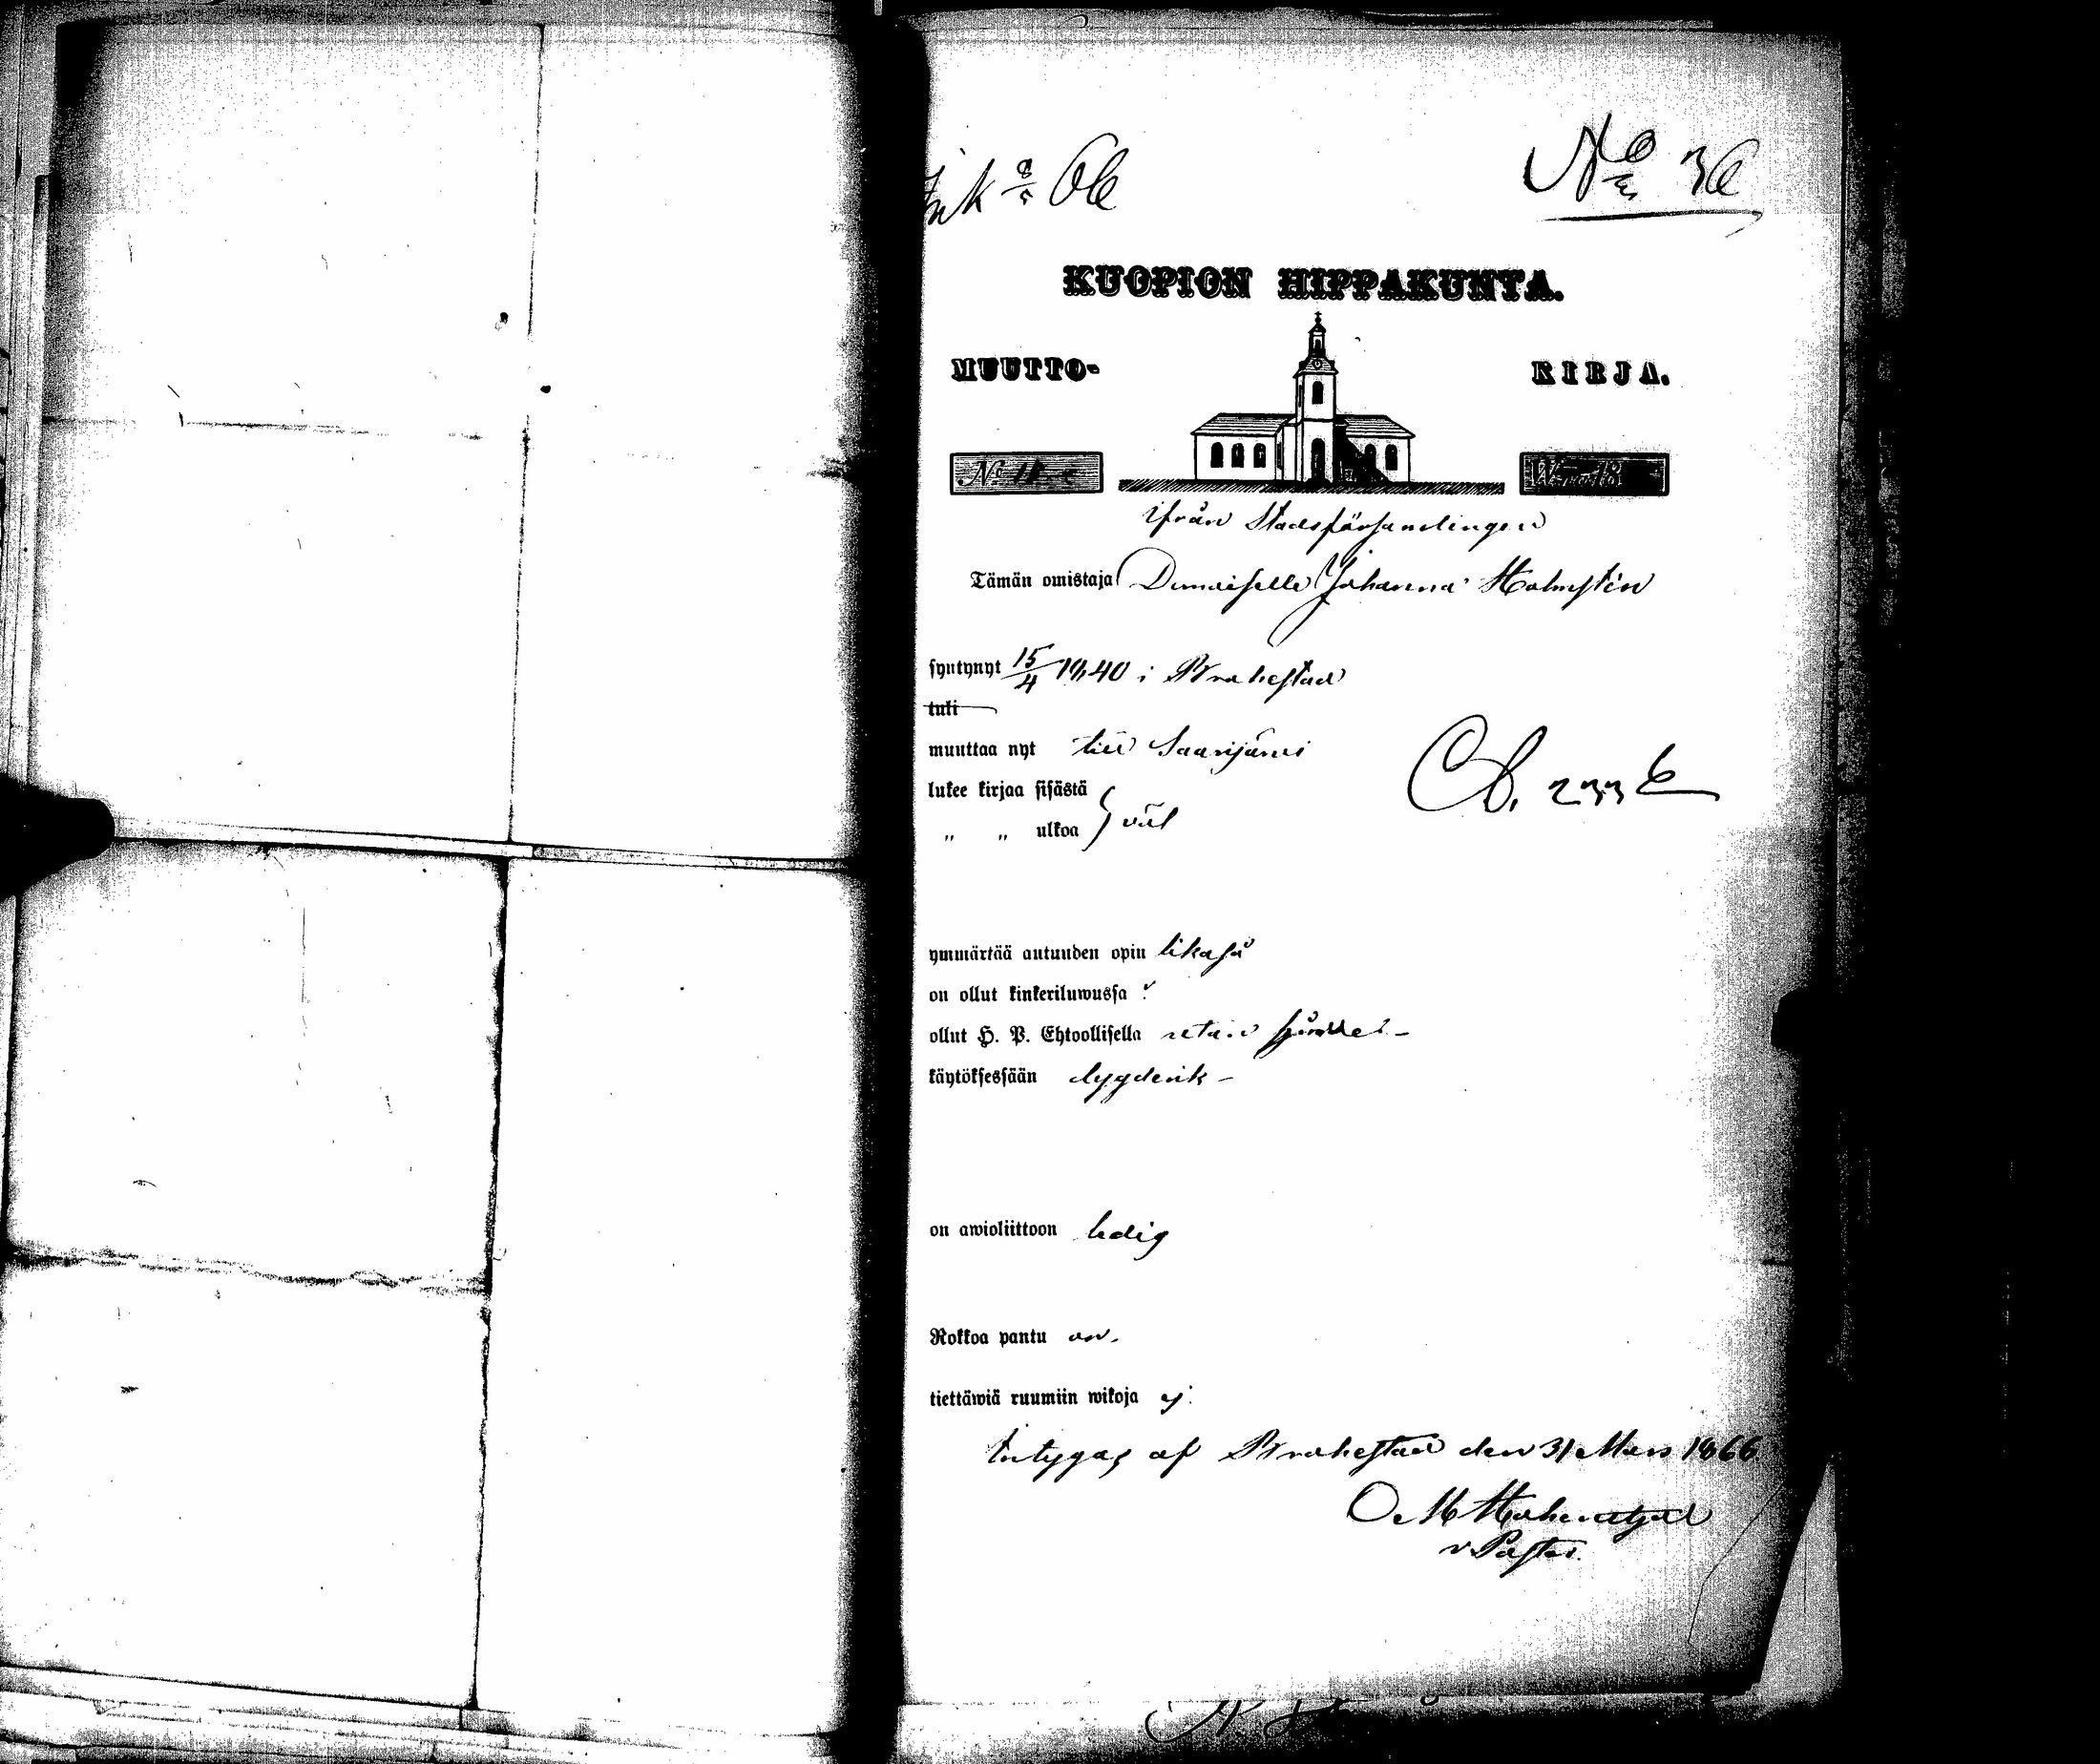 Ink 8/5 66
No 36
KUOPION HIPPAKUNTA.
MUUTTO- KIRJA.
No
Wuonna 18
ifrån Stadsförsamlingen
Tämän omistaja Demoiselle Johanna Holmstén
syntynyt 15/4 1840 i Brahestad
tuli
muuttaa nyt till Saarijärvi
lukee kirjaa sisästä
„ „ ulkoa } väl
ymmärtää autuuden opin likaså
on ollut kinkeriluwussa
ollut H. P. Ehtoollisella utan hinder
käytöksessään dygderik
on awioliittoon ledig
Rokkoa pantu
tiettäwiä ruumiin wikoja ej.
Intygas af Brahestad den 31 Mars 1866.
v Pastor.